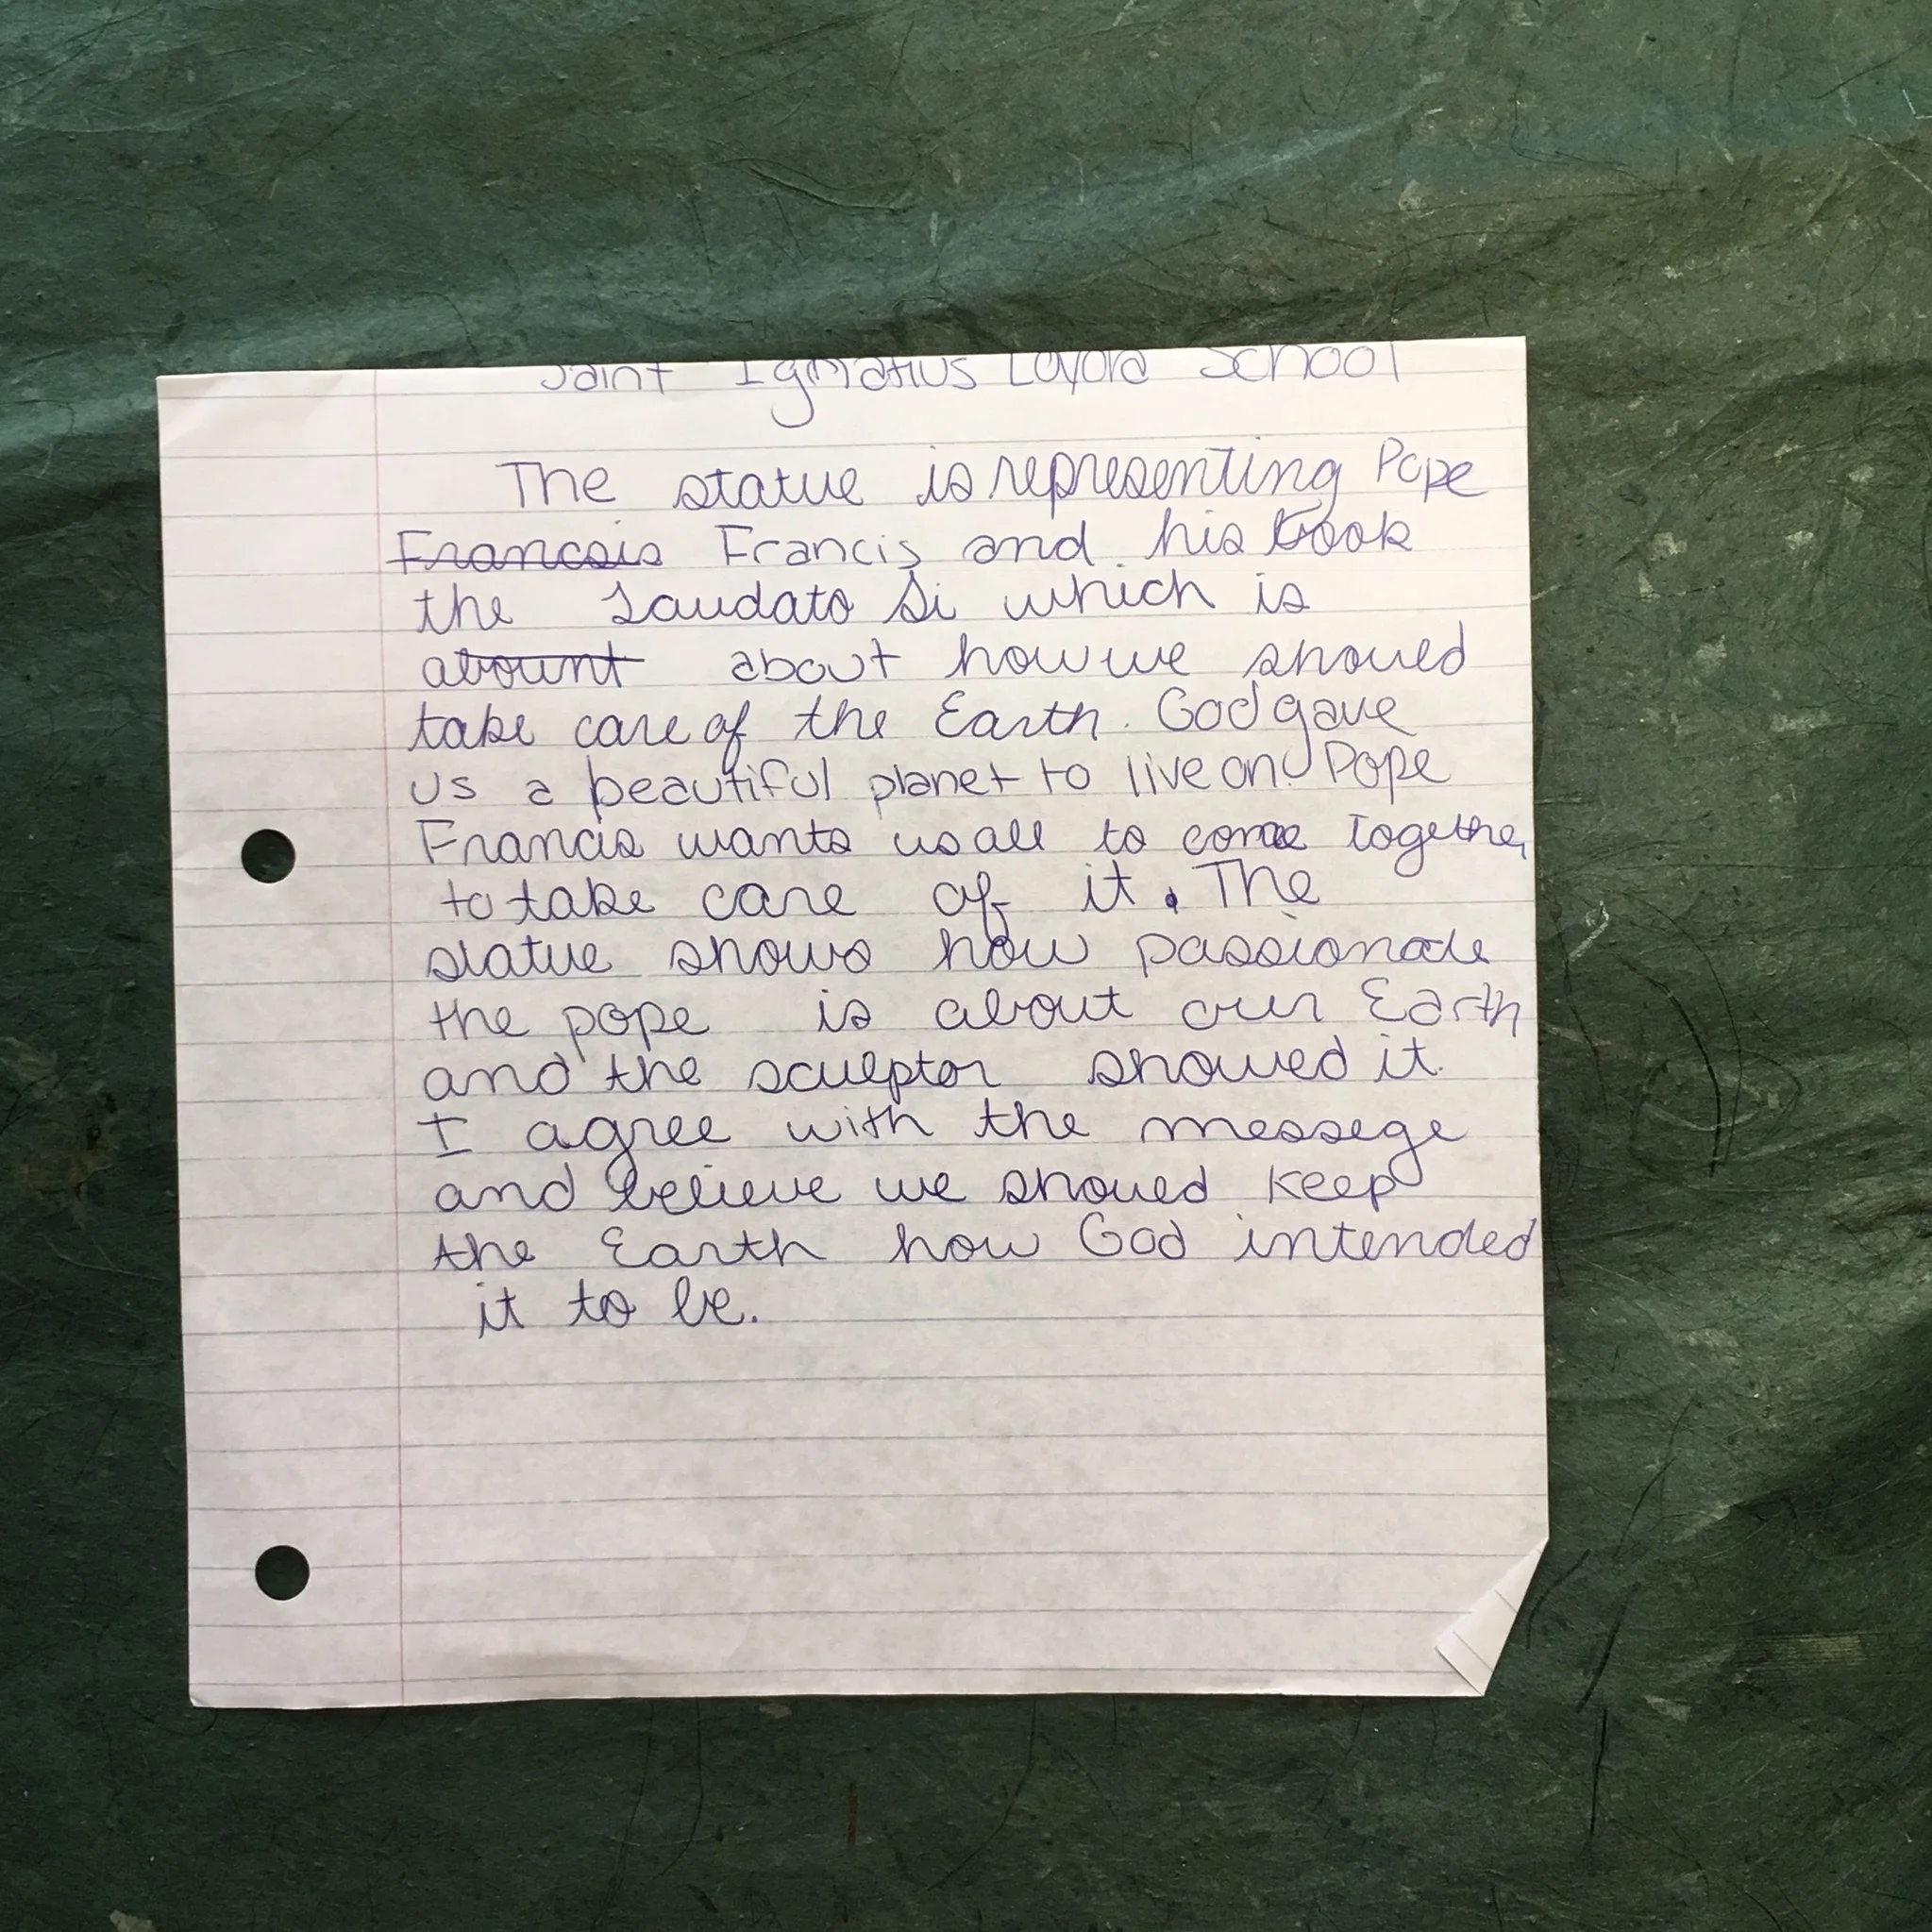 Saint Ignatius Loyola School
The statue is representing Pope
Francsis Francis and his book
the Laudato Si which is
abount about how we should
take care of the Earth. God gave
us a beautiful planet to live on. Pope
Francis wants us all to come together
to take care of it. The
statue shows how passionate
the pope is about our Earth
and the sculptor showed it.
I agree with the messege
and believe we should keep
the Earth how God intended
it to be.